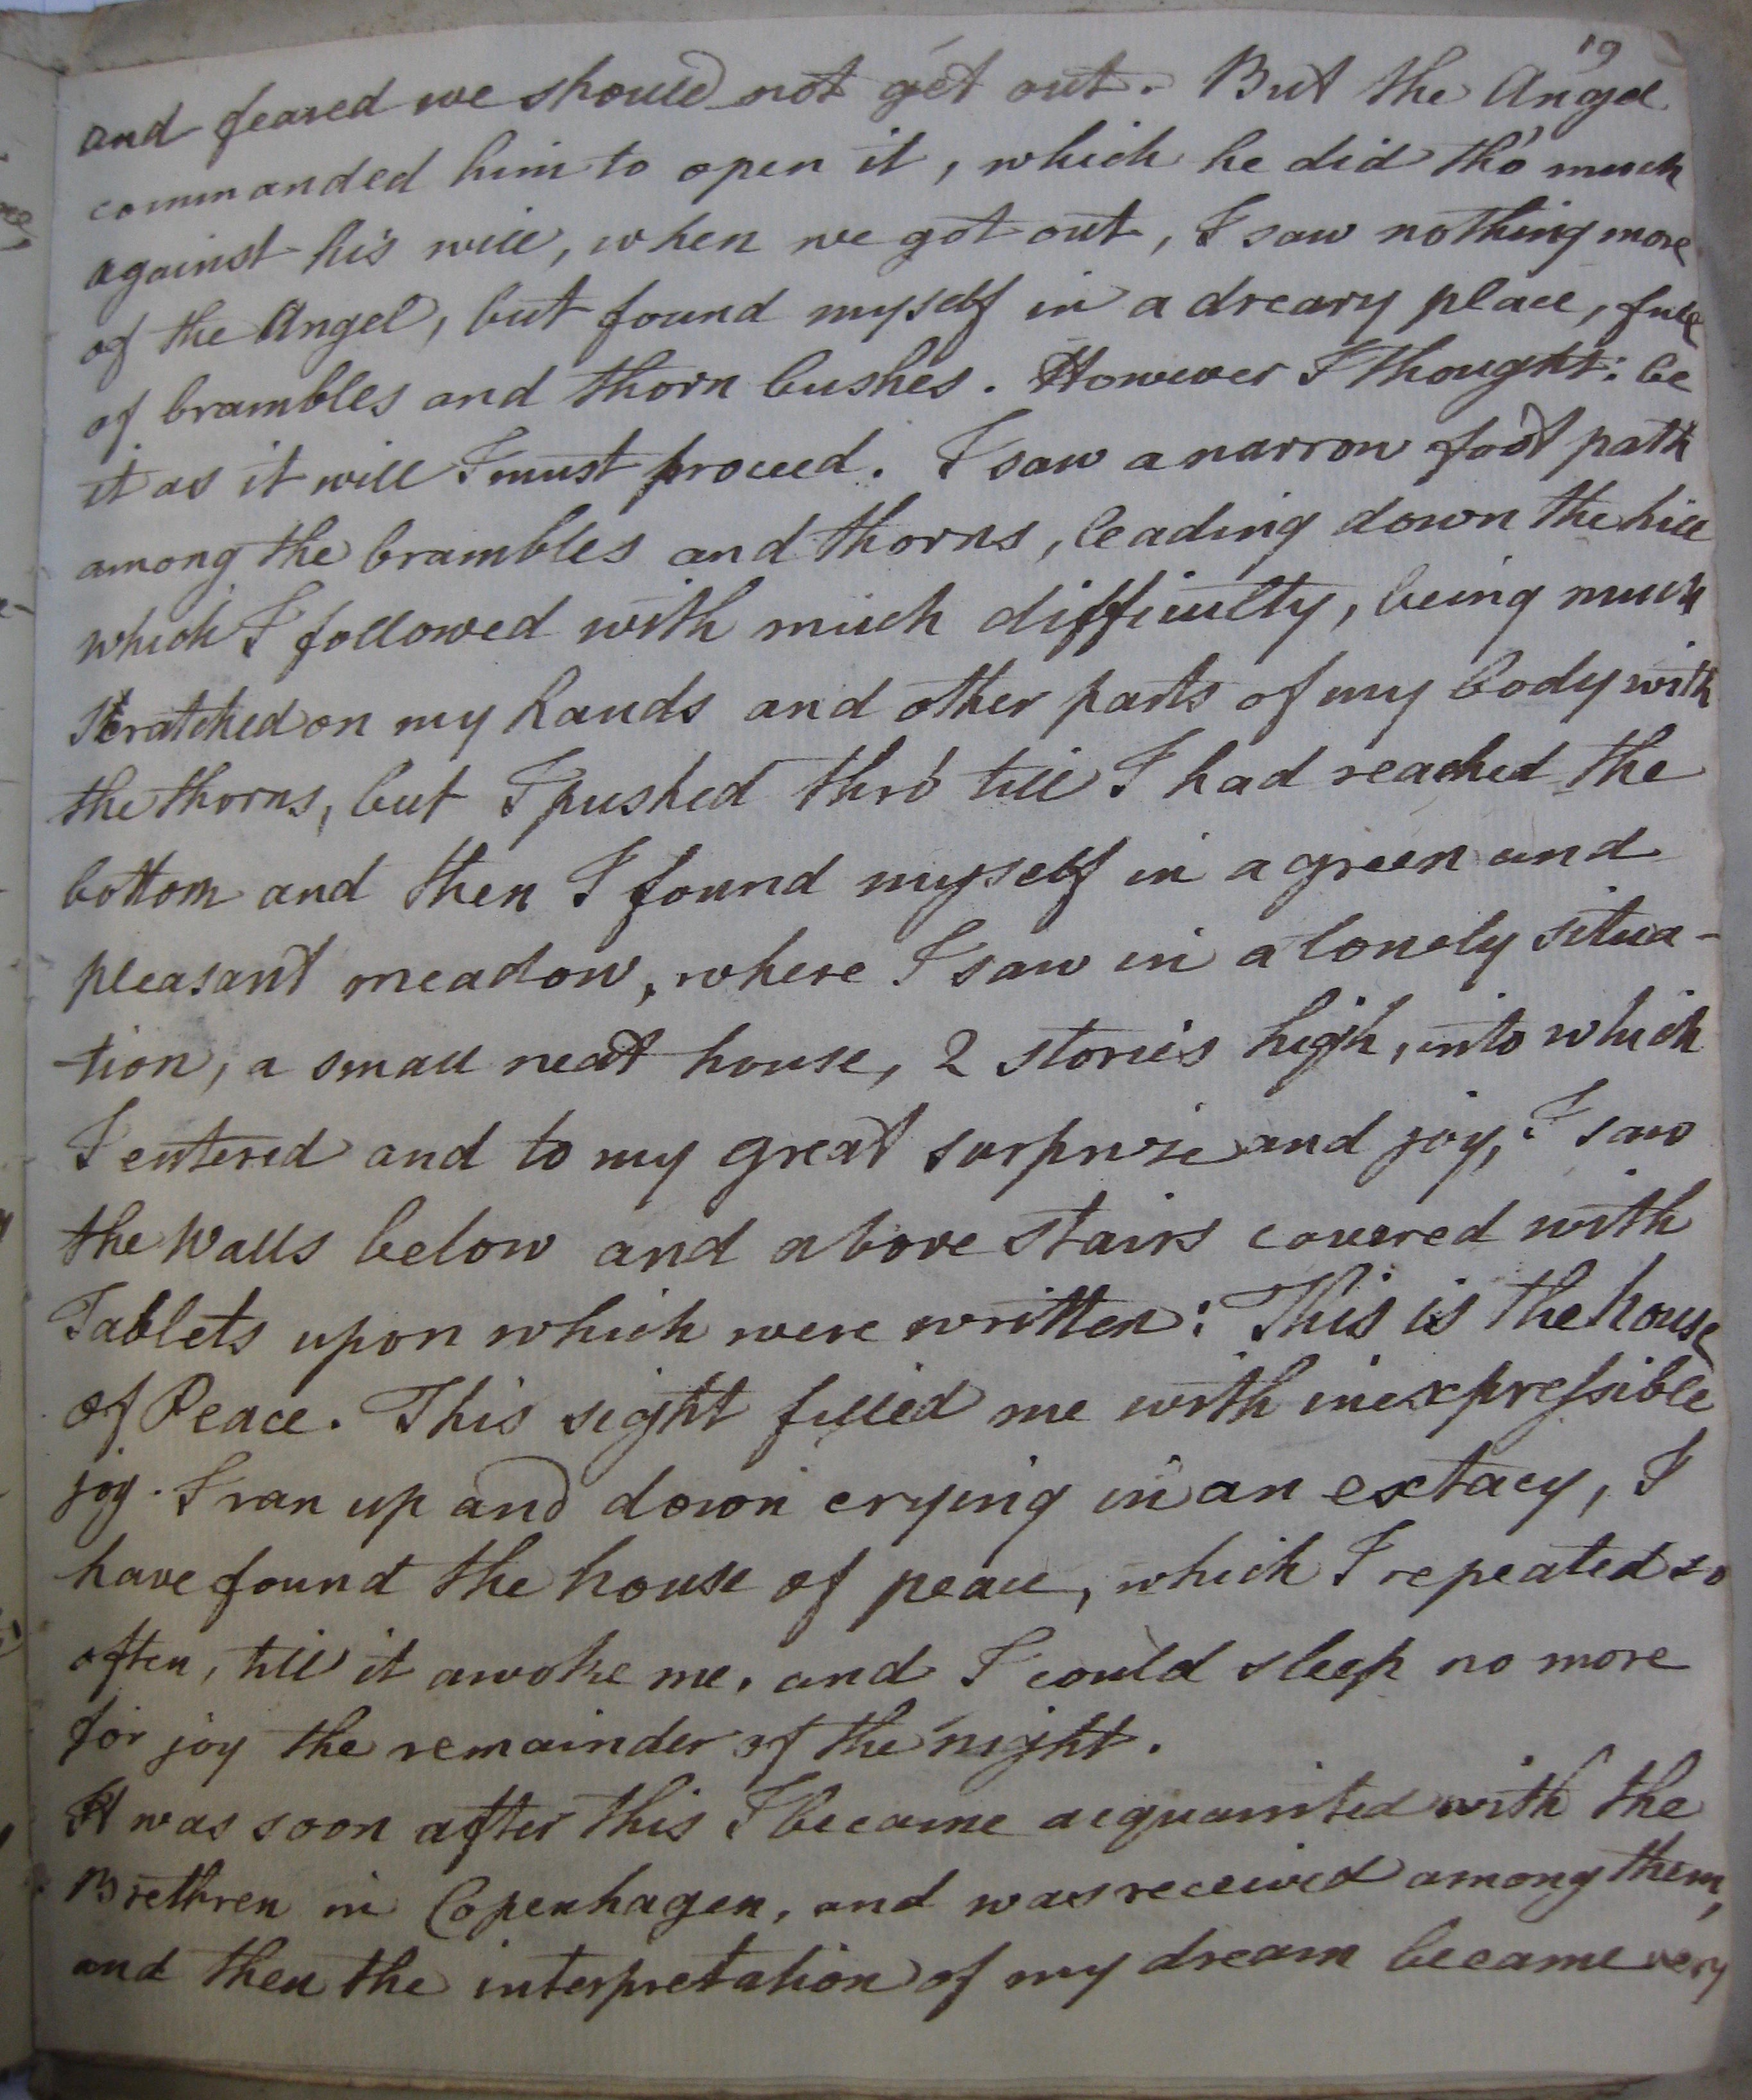 19
and feared we should not get out. But the Angel
commanded him to open it, which he did tho' much
against his will, when we got out, I saw nothing more
of the Angel, but found myself in a dreary place, full
of brambles and thorn bushes. However I thought: be
it as it will I must proceed. I saw a narrow foot path
among the brambles and thorns, leading down the hill
which I followed with much difficulty, being much
scratched on my hands and other parts of my body with
the thorns, but I pushed thro' till I had reached the
bottom and then I found myself in a green and
pleasant meadow, where I saw in a lonely situa-
-tion, a small neat house, 2 stories high, into which
I entered and to my great surprize and joy, I saw
the Walls below and above stairs covered with
Tablets upon which were written: This is the house
of Peace. This sight filled me with inexpressible
joy. I ran up and down crying in an extacy, I
have found the house of peace, which I repeated so
often, till it awoke me, and I could sleep no more
for joy the remainder of the night.
It was soon after this I became acquainted with the
Brethren in Copenhagen, and was received among them,
and then the interpretation of my dream became very